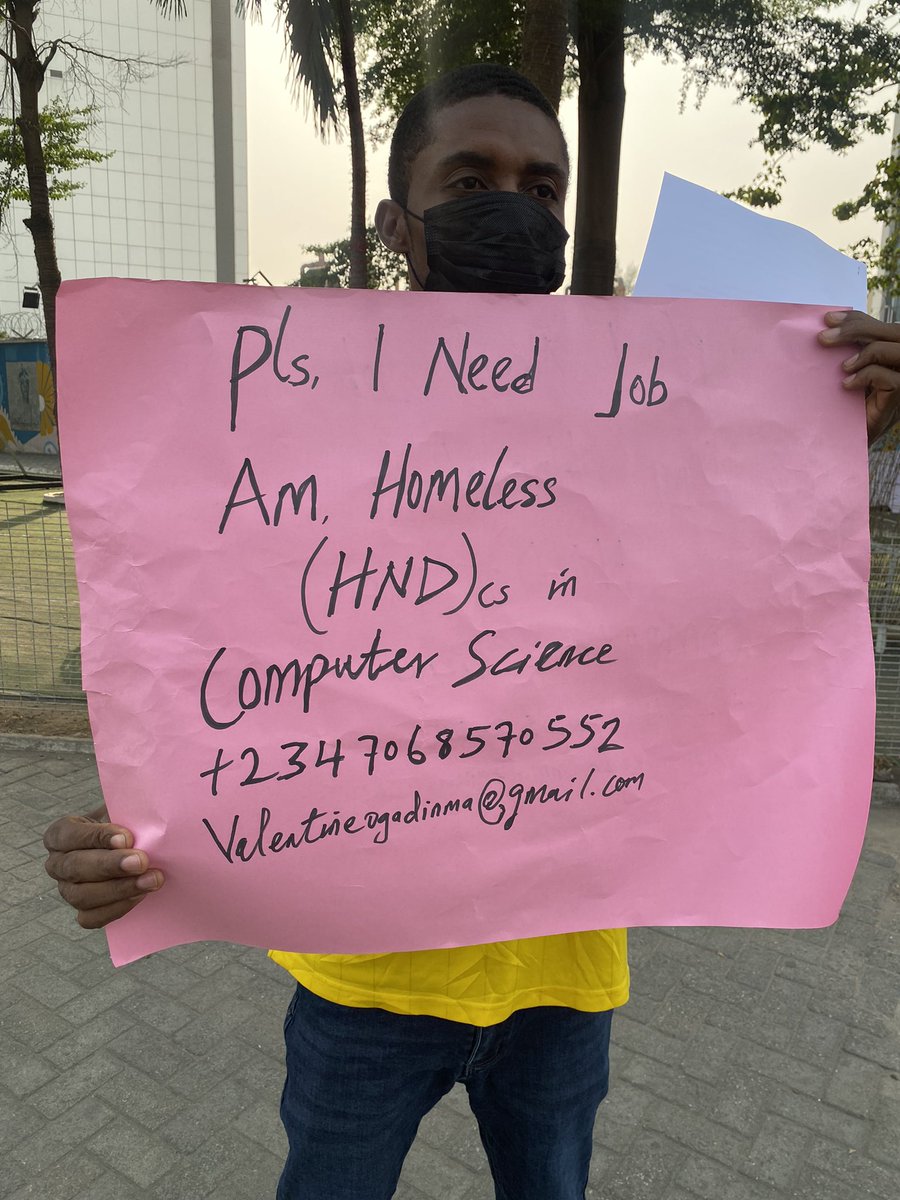 Pls, I Need Job
Am, Homeless
(HND) cs in
Computer Science
+2347068570552
Valentineogadinma@gmail.com